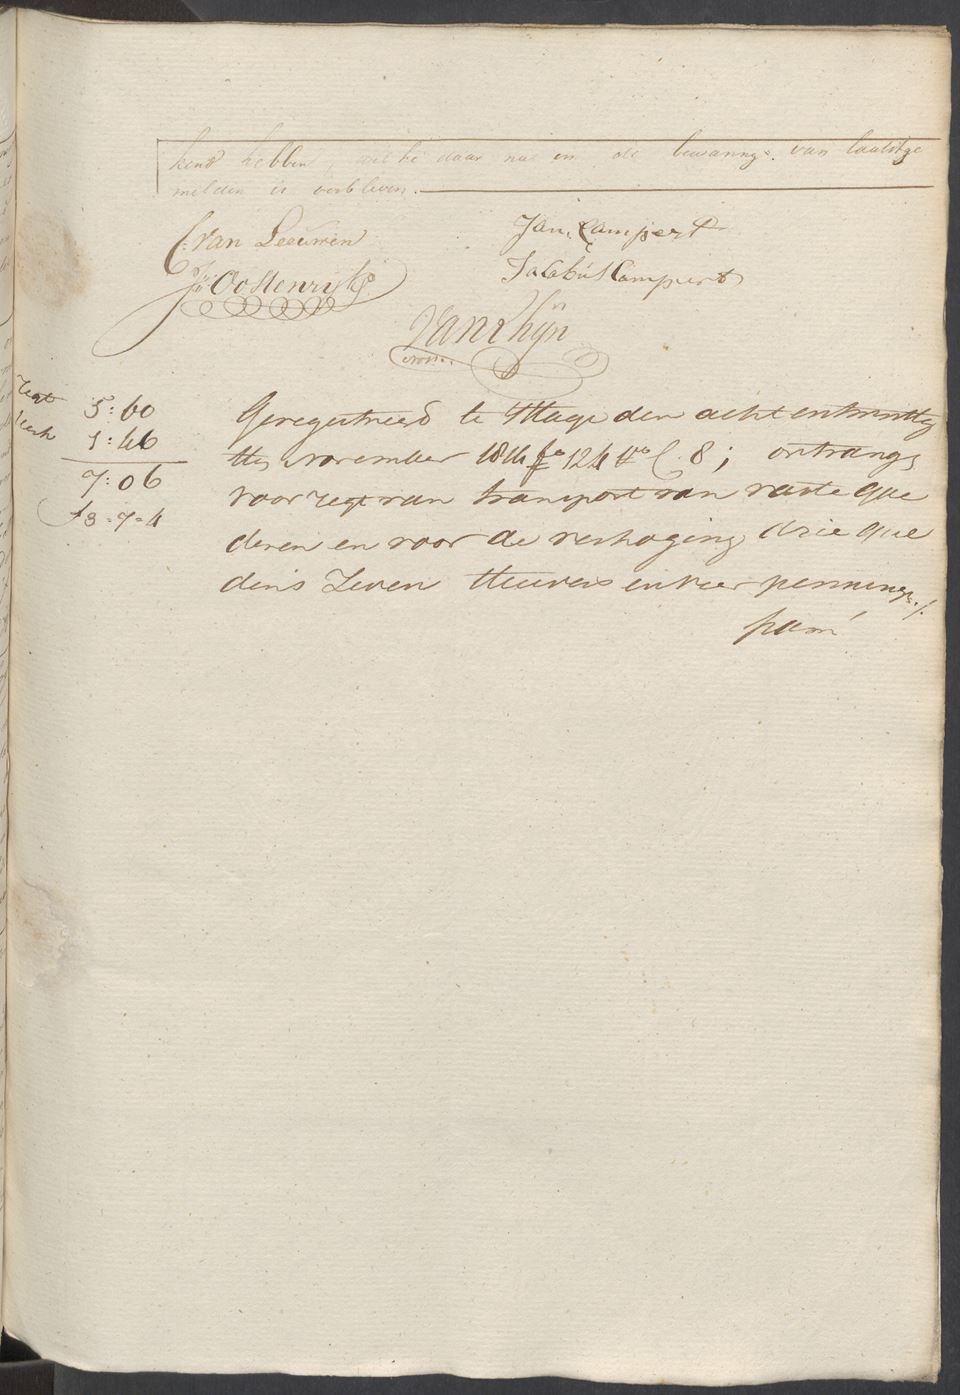 kend hebben, daar na en de bewaaring van laatstge
melden is verbleven.
C: van Leeuwen
Jan Campert
J: Oostenryk
Jacobus Campert
Van Rhijn
nots.
regt 5: 60
1: 46
7: 06
f 3 - 7 - 4
Geregistreerd te s'Hage den acht en twintig
sten November 1816 fo 124 Vo C. 8; ontvangs
voor regt van transport van vaste goe
deren en voor de verhoging drie gul
dens Zeven stuivers en vier penning. /.